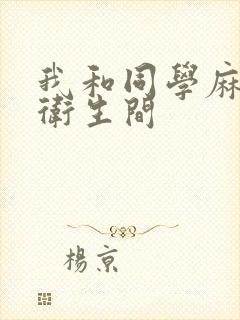 我和同學麻
衛生間
楊京